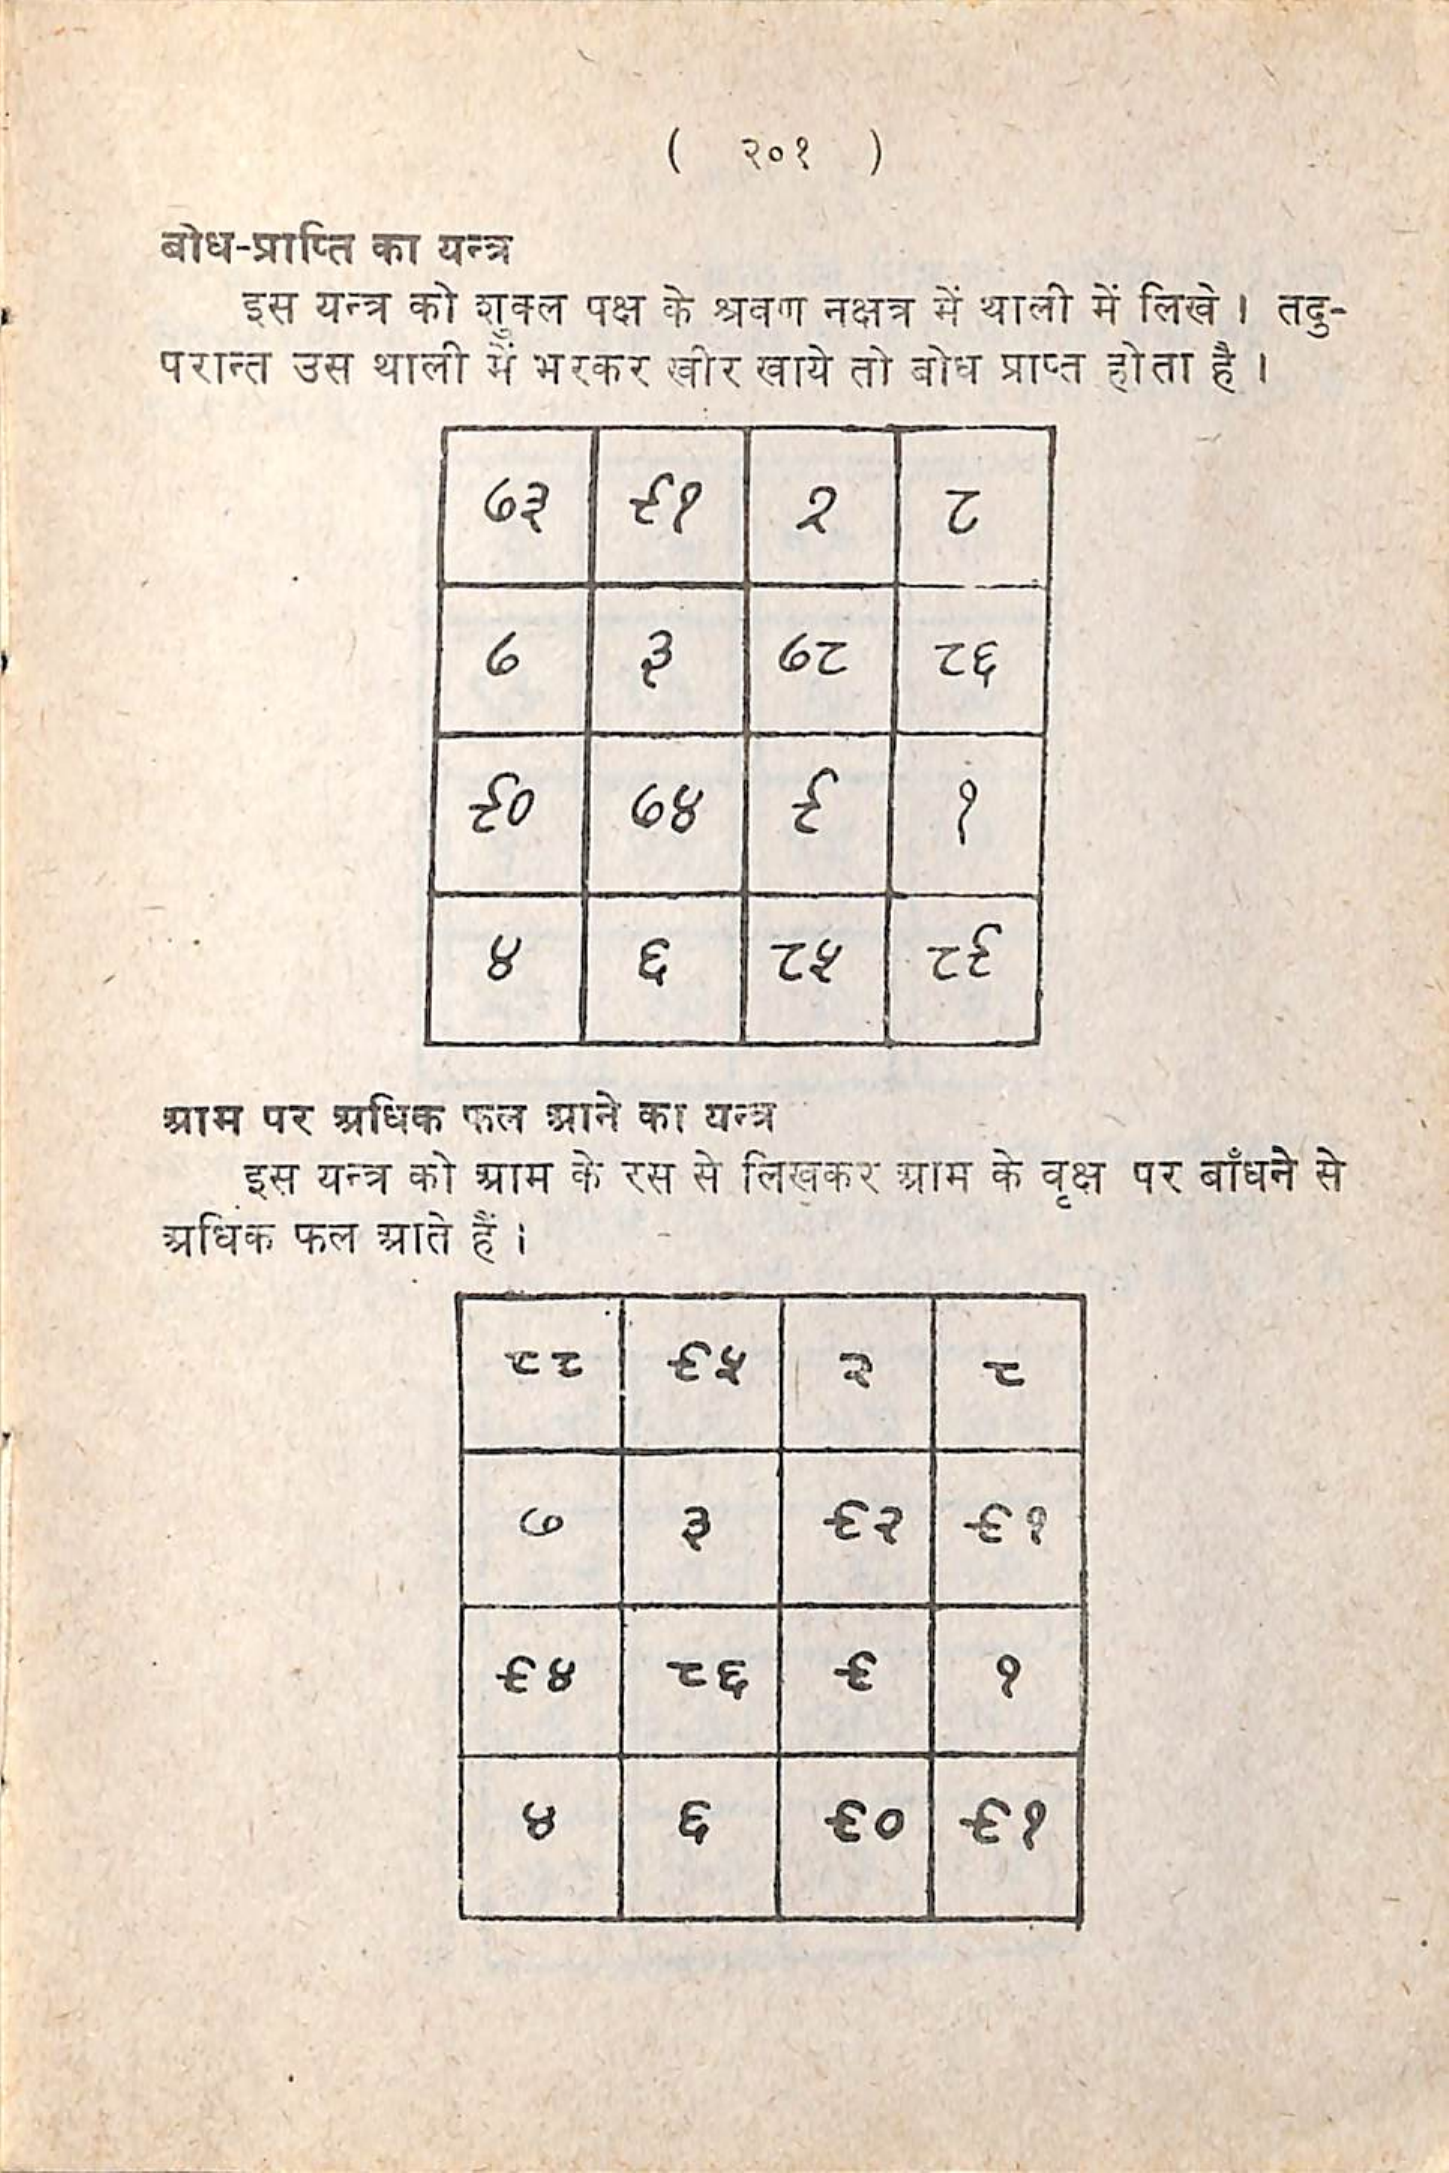 ( २०१ )
बोध-प्राप्ति का यन्त्र
इस यन्त्र को शुक्ल पक्ष के श्रवण नक्षत्र में थाली में लिखे। तदु-
परान्त उस थाली में भरकर खीर खाये तो बोध प्राप्त होता है।
७३ ९१ २ ८
७ ३ ७८ ८६
९० ७४ ९ १
४ ६ ८५ ८९
आम पर अधिक फल आने का यन्त्र
इस यन्त्र को आम के रस से लिखकर आम के वृक्ष पर बाँधने से
अधिक फल आते हैं।
८८ ९५ २ ८
७ ३ ९२ ९१
९४ ८६ ९ १
४ ६ ९० ९१